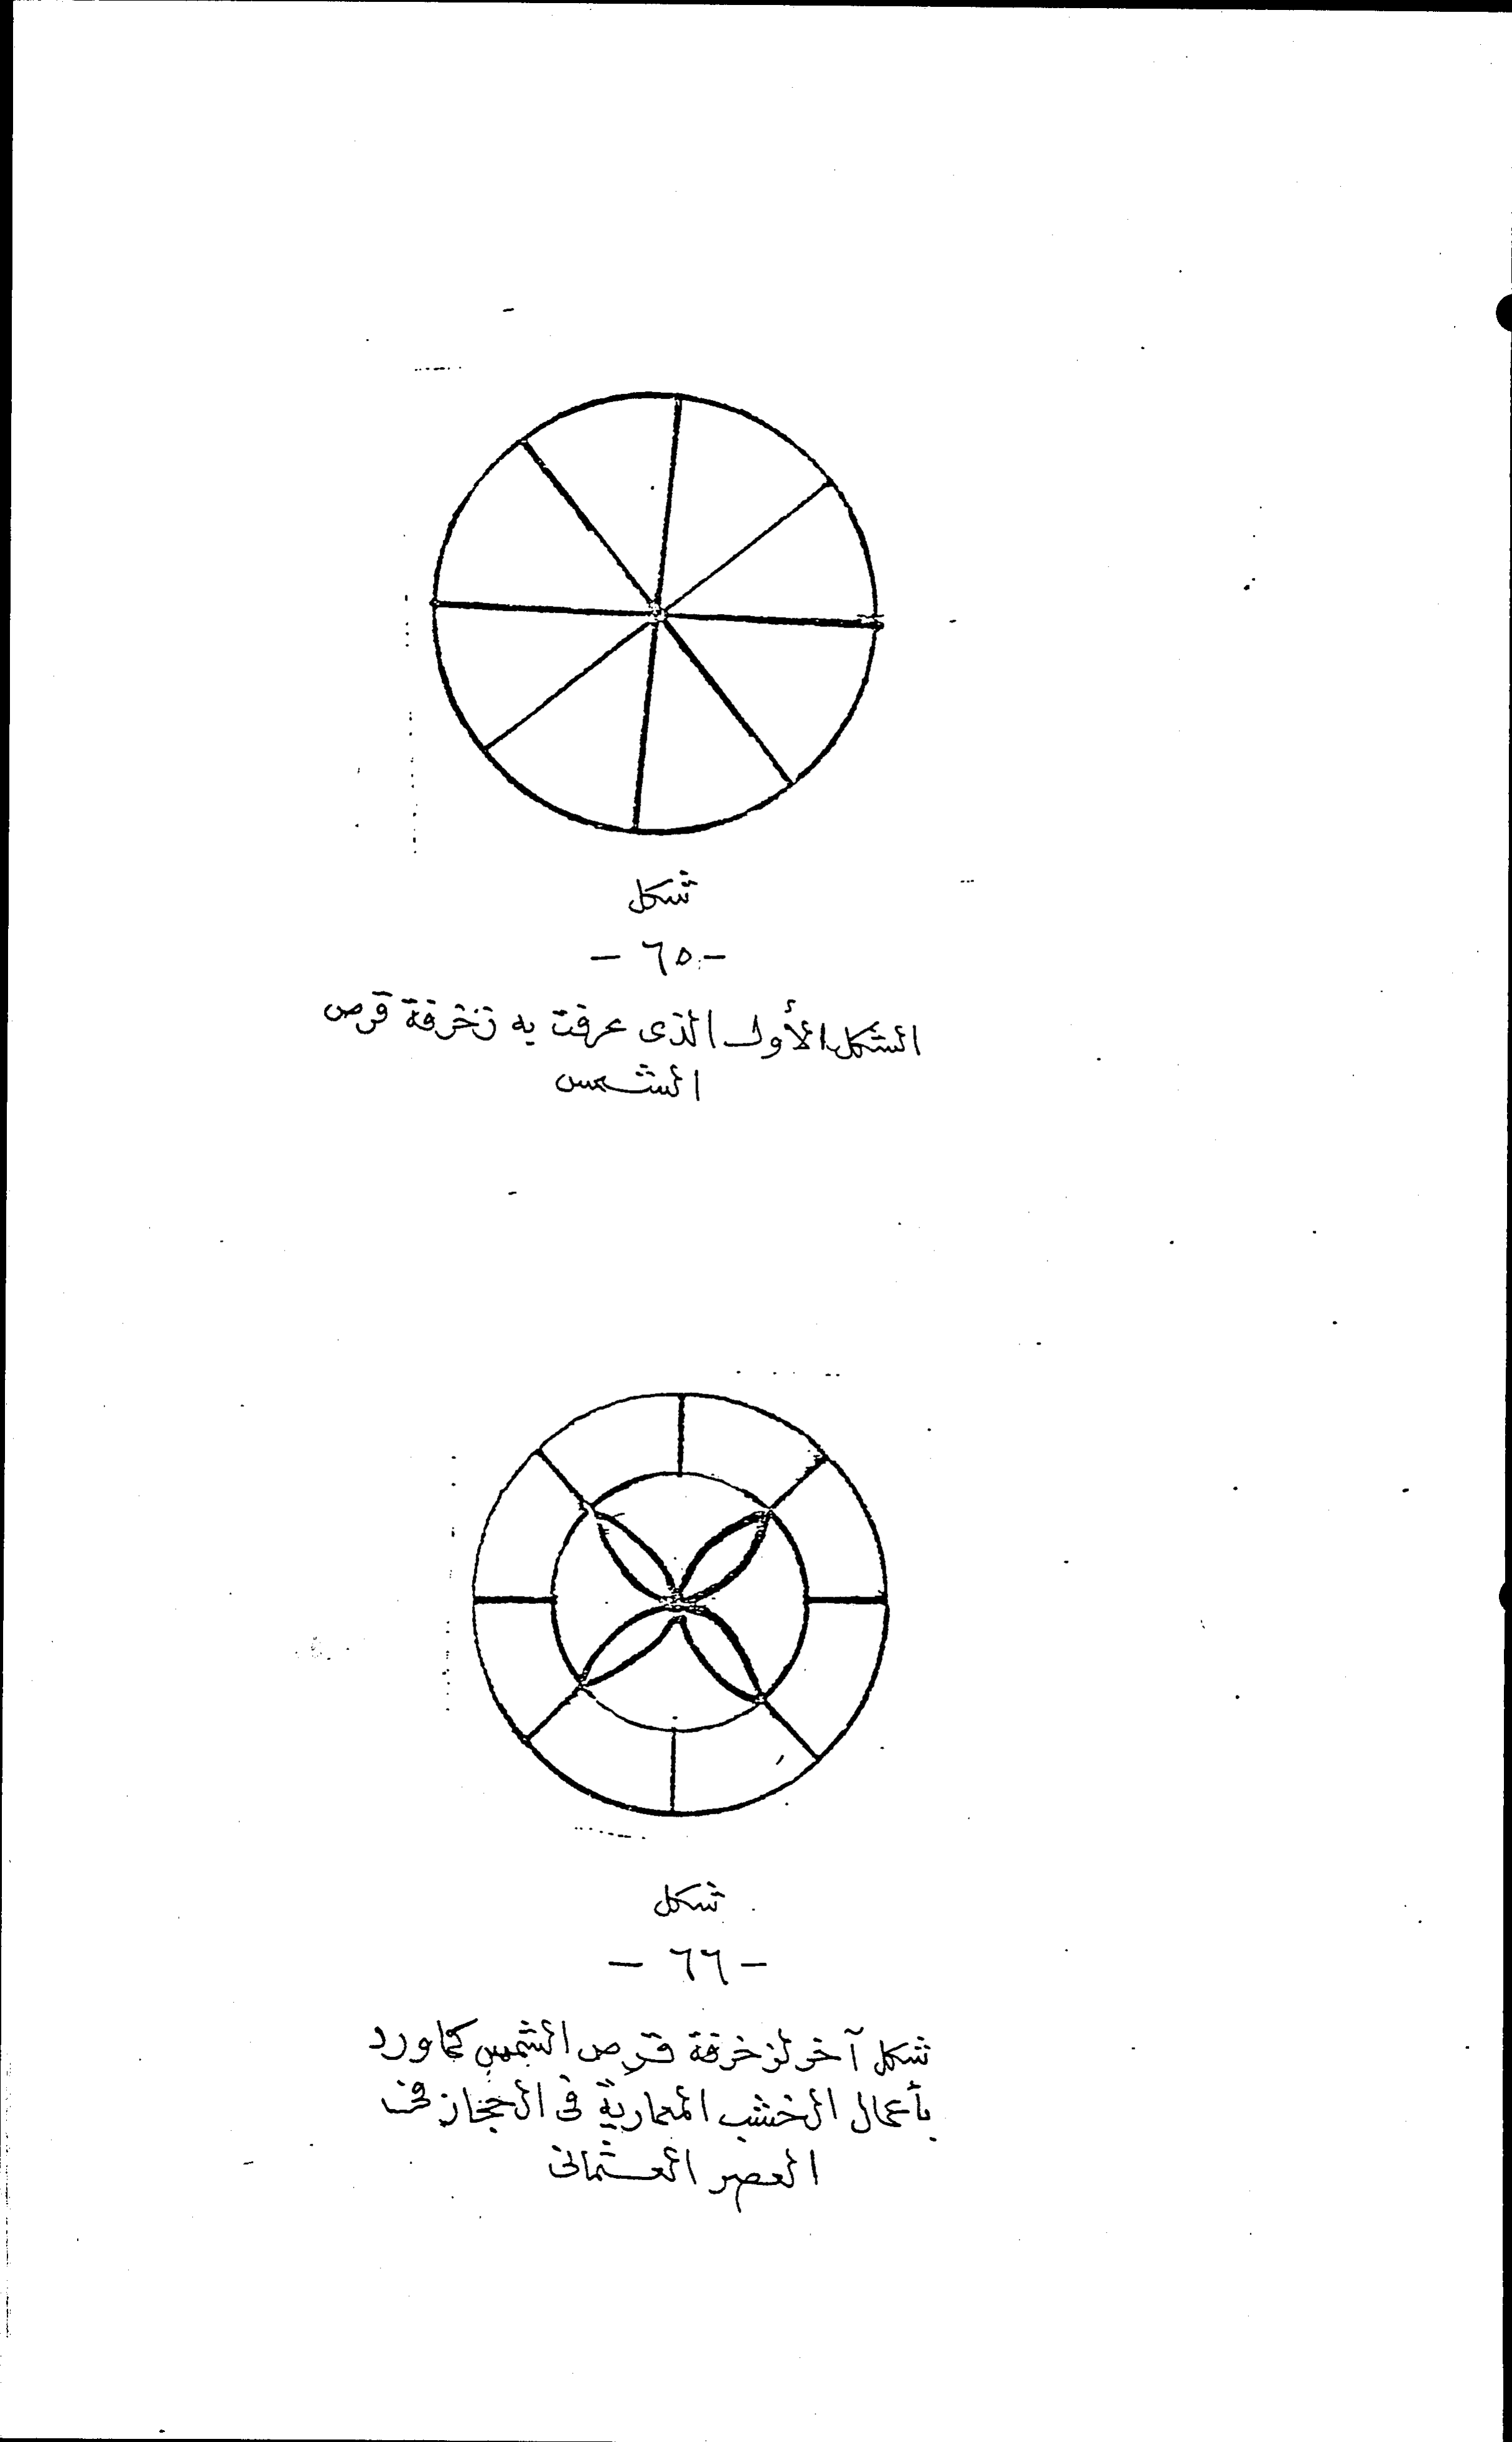 شكل
- ٦٥ -
الشكل الأول الذى عرفت به زخرفة قرص
الشمس
شكل
- ٦٦ -
شكل آخر لزخرفة قرص الشمس كما ورد
بأعمال الخشب المعمارية فى الحجاز فى
العصر العثمانى